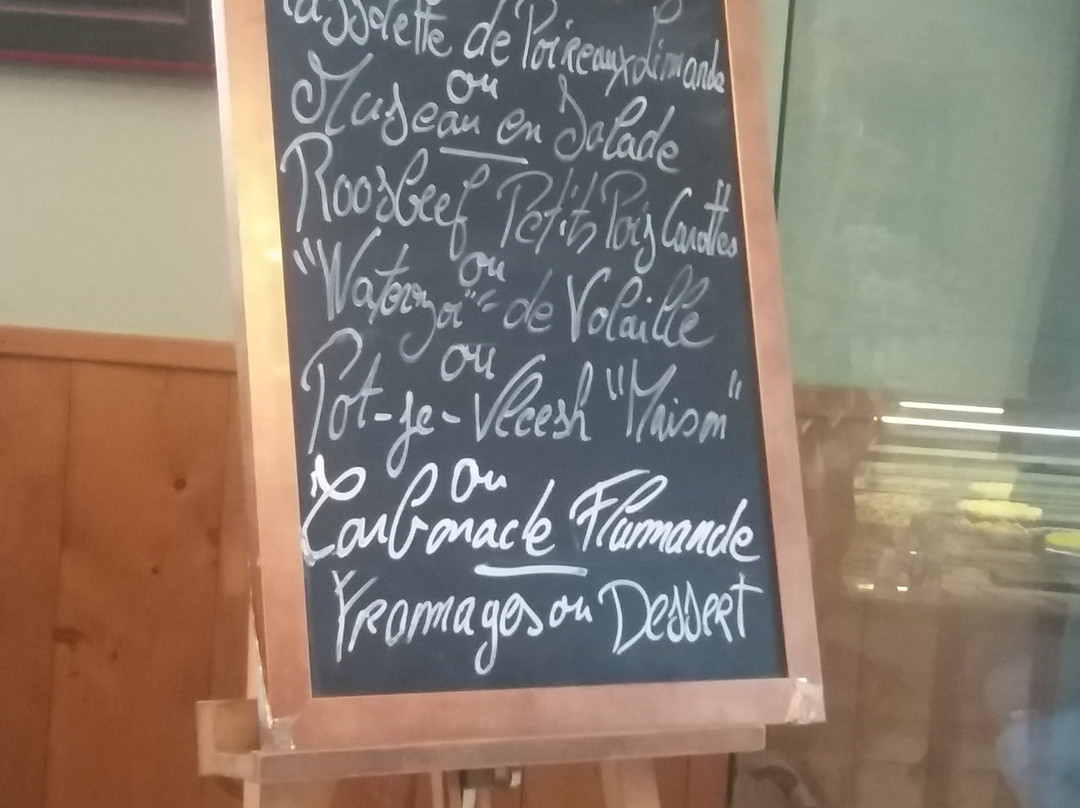 Cassolette de Poireaux Limande
ou
Museau en Salade
Roosbeef Petits Pois Carottes
ou
"Waterzoï" de Volaille
ou
Pot-je-Vleesh "Maison"
ou
Carbonade Flamande
Fromages ou Dessert